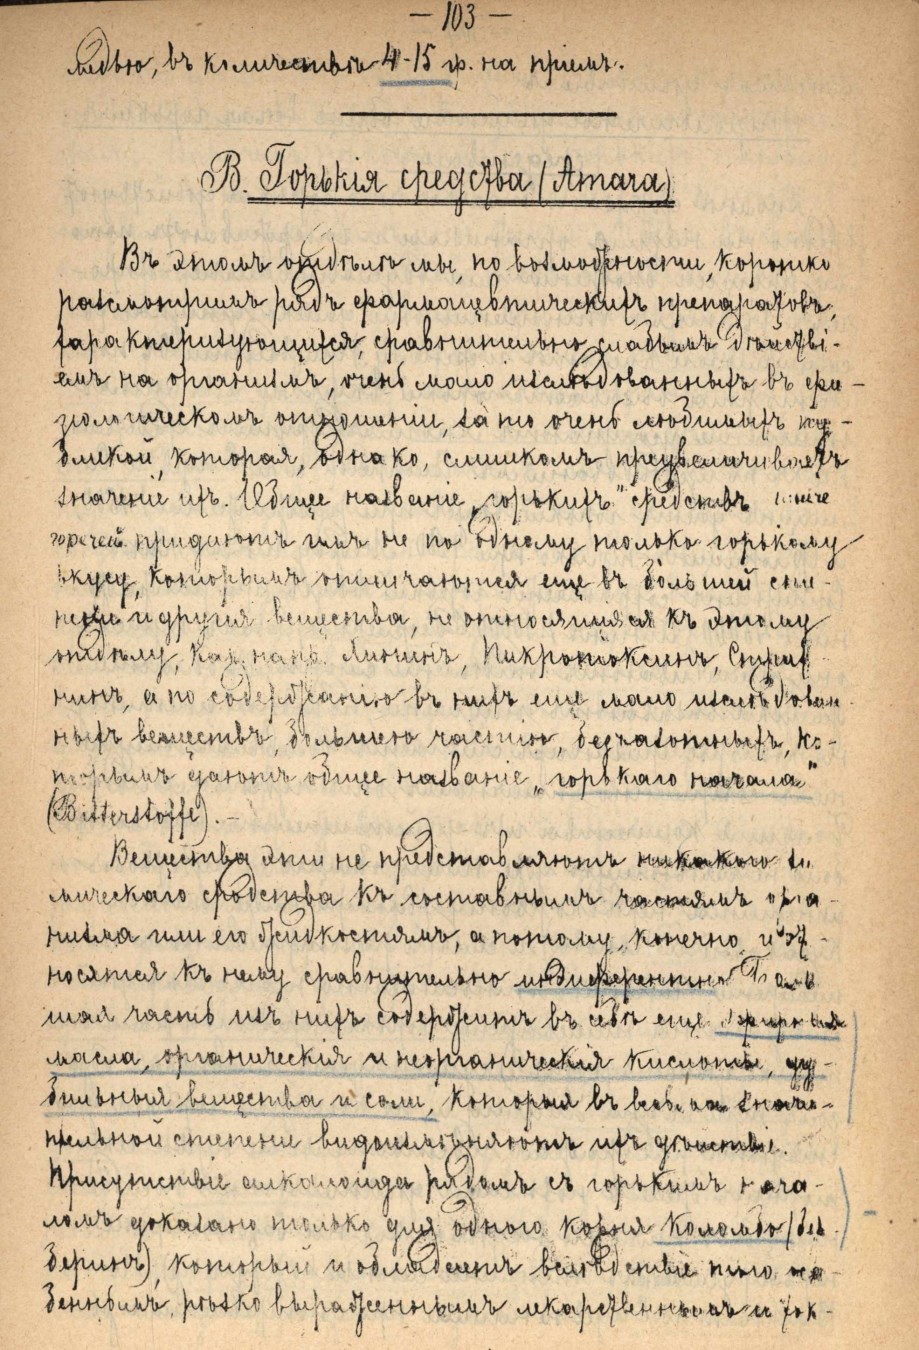 — 103 —
медью, въ количествѣ 4-15 гр. на пріемъ.
В. Горькія средства (Amara)
Въ этомъ отдѣлѣ мы, по возможности, коротко
разсмотримъ рядъ фармацевтическихъ препаратовъ,
характеризующихся, сравнительно, слабымъ дѣйстві-
емъ на организмъ, очень мало изслѣдованныхъ въ фи-
зіологическомъ отношеніи, за то очень любимыхъ пу-
бликой, которая, однако, слишкомъ преувеличиваетъ
значеніе ихъ. Общее названіе „горькихъ" средствъ
придаютъ имъ не по одному только горькому
вкусу, которымъ отличаются еще въ большей сте-
пени и другія вещества, не относящіяся къ этому
отдѣлу, как напр. Пикротоксинъ, Стрих-
нинъ, а по содержанію въ нихъ еще мало изслѣдован-
ныхъ веществъ, большею частію, безъазотныхъ, ко-
торымъ даютъ общее названіе „горькаго начала"
(Bitterstoffe). —
Вещества эти не представляютъ никакого хи-
мическаго сродства къ составнымъ частямъ орга-
низма или его жидкостямъ, а потому, конечно, и от-
носятся къ нему сравнительно индиферентно. Боль-
шая часть изъ нихъ содержитъ въ себѣ еще эфирныя
масла, органическія и неорганическія кислоты, ду-
бильныя вещества и соли, которыя въ весьма значи-
тельной степени видоизмѣняютъ ихъ дѣйствіе.
Присутствіе алкалоида рядомъ съ горькимъ нача-
ломъ доказано только для одного корня Коломбо (бер-
беринъ), который и обладаетъ вслѣдствіе того осо-
беннымъ, рѣзко выраженнымъ лекарственнымъ и ток-